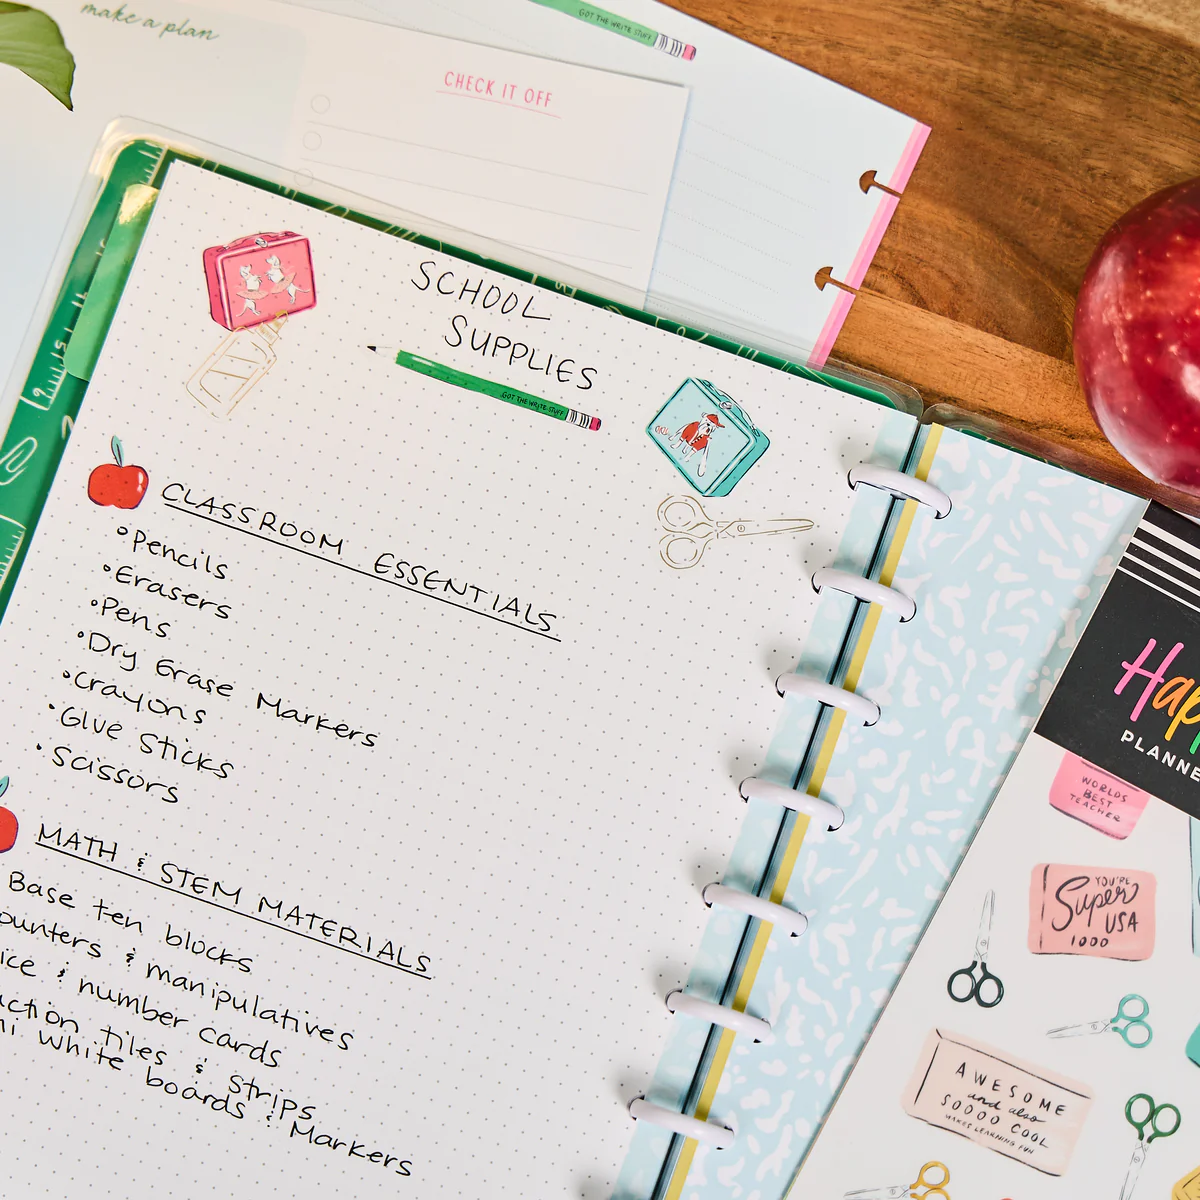 make a plan
GOT THE WRITE STUFF
CHECK IT OFF
SCHOOL
SUPPLIES
GOT THE WRITE STUFF
CLASSROOM ESSENTIALS
Pencils
Erasers
Pens
Dry Erase Markers
Crayons
Glue Sticks
Scissors
MATH & STEM MATERIALS
Base ten blocks
ounters & manipulatives
ice & number cards
action tiles & strips
ni white boards & Markers
Hap
PLANNE
WORLDS
BEST
TEACHER
YOU'RE
Super
USA
1000
AWESOME
and also
SOOOO COOL
MAKES LEARNING FUN